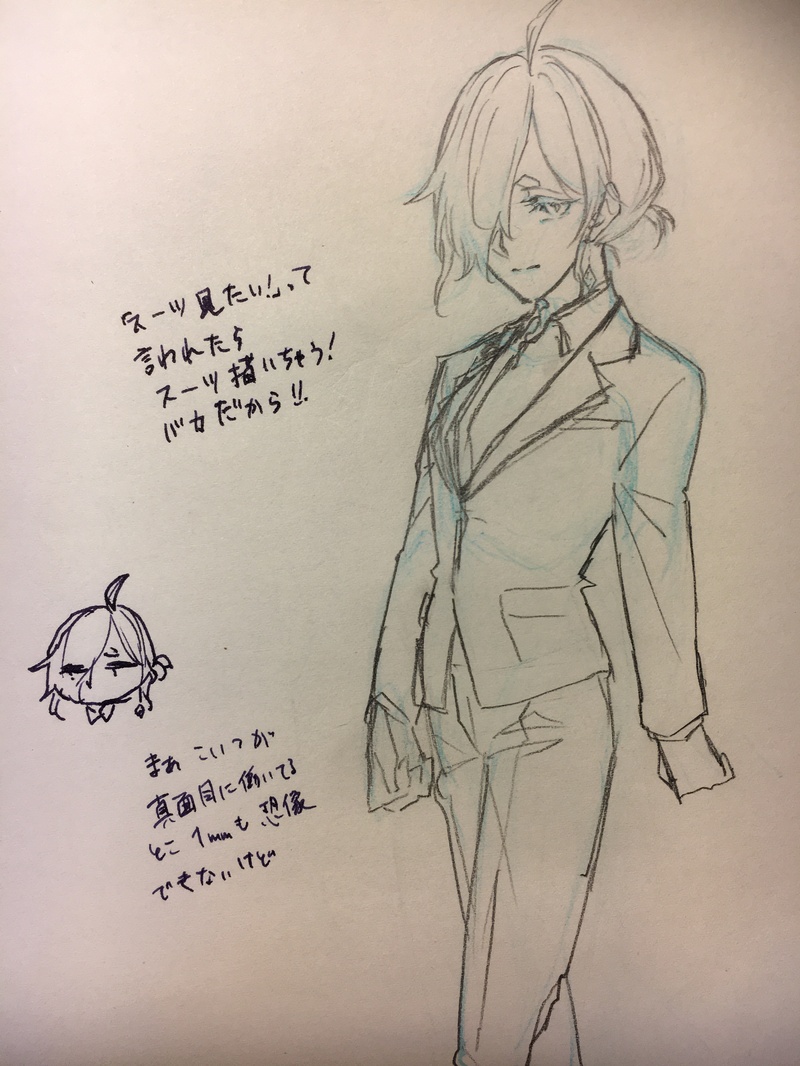 「スーツ見たい!」って
言われたら
スーツ描いちゃう!
バカだから!!
まあ こいつが
真面目に働いてる
とこ 1mmも 想像
できないけど